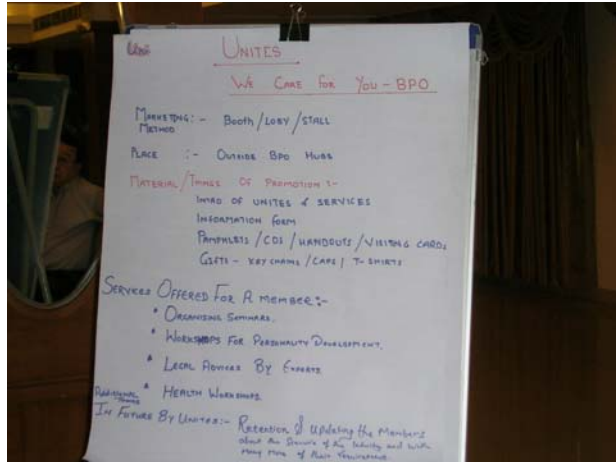 UNITES
WE CARE FOR YOU - BPO
MARKETING :- BOOTH / LOBY / STALL
METHOD
PLACE :- OUTSIDE BPO HUBS
MATERIAL / THINGS OF PROMOTION :-
INTRO OF UNITES & SERVICES
INFORMATION FORM
PAMPHLETS / CDS / HANDOUTS / VISITING CARDS
GIFTS - KEY CHAINS / CAPS / T-SHIRTS
SERVICES OFFERED FOR A MEMBER :-
* ORGANISING SEMINARS.
* WORKSHOPS FOR PERSONALITY DEVELOPMENT.
* LEGAL ADVICES BY EXPERTS
* HEALTH WORKSHOPS.
ADDITIONAL
IN FUTURE BY UNITES :- Retention & Updating the Members
about the Service of the and with
many more of their requirement